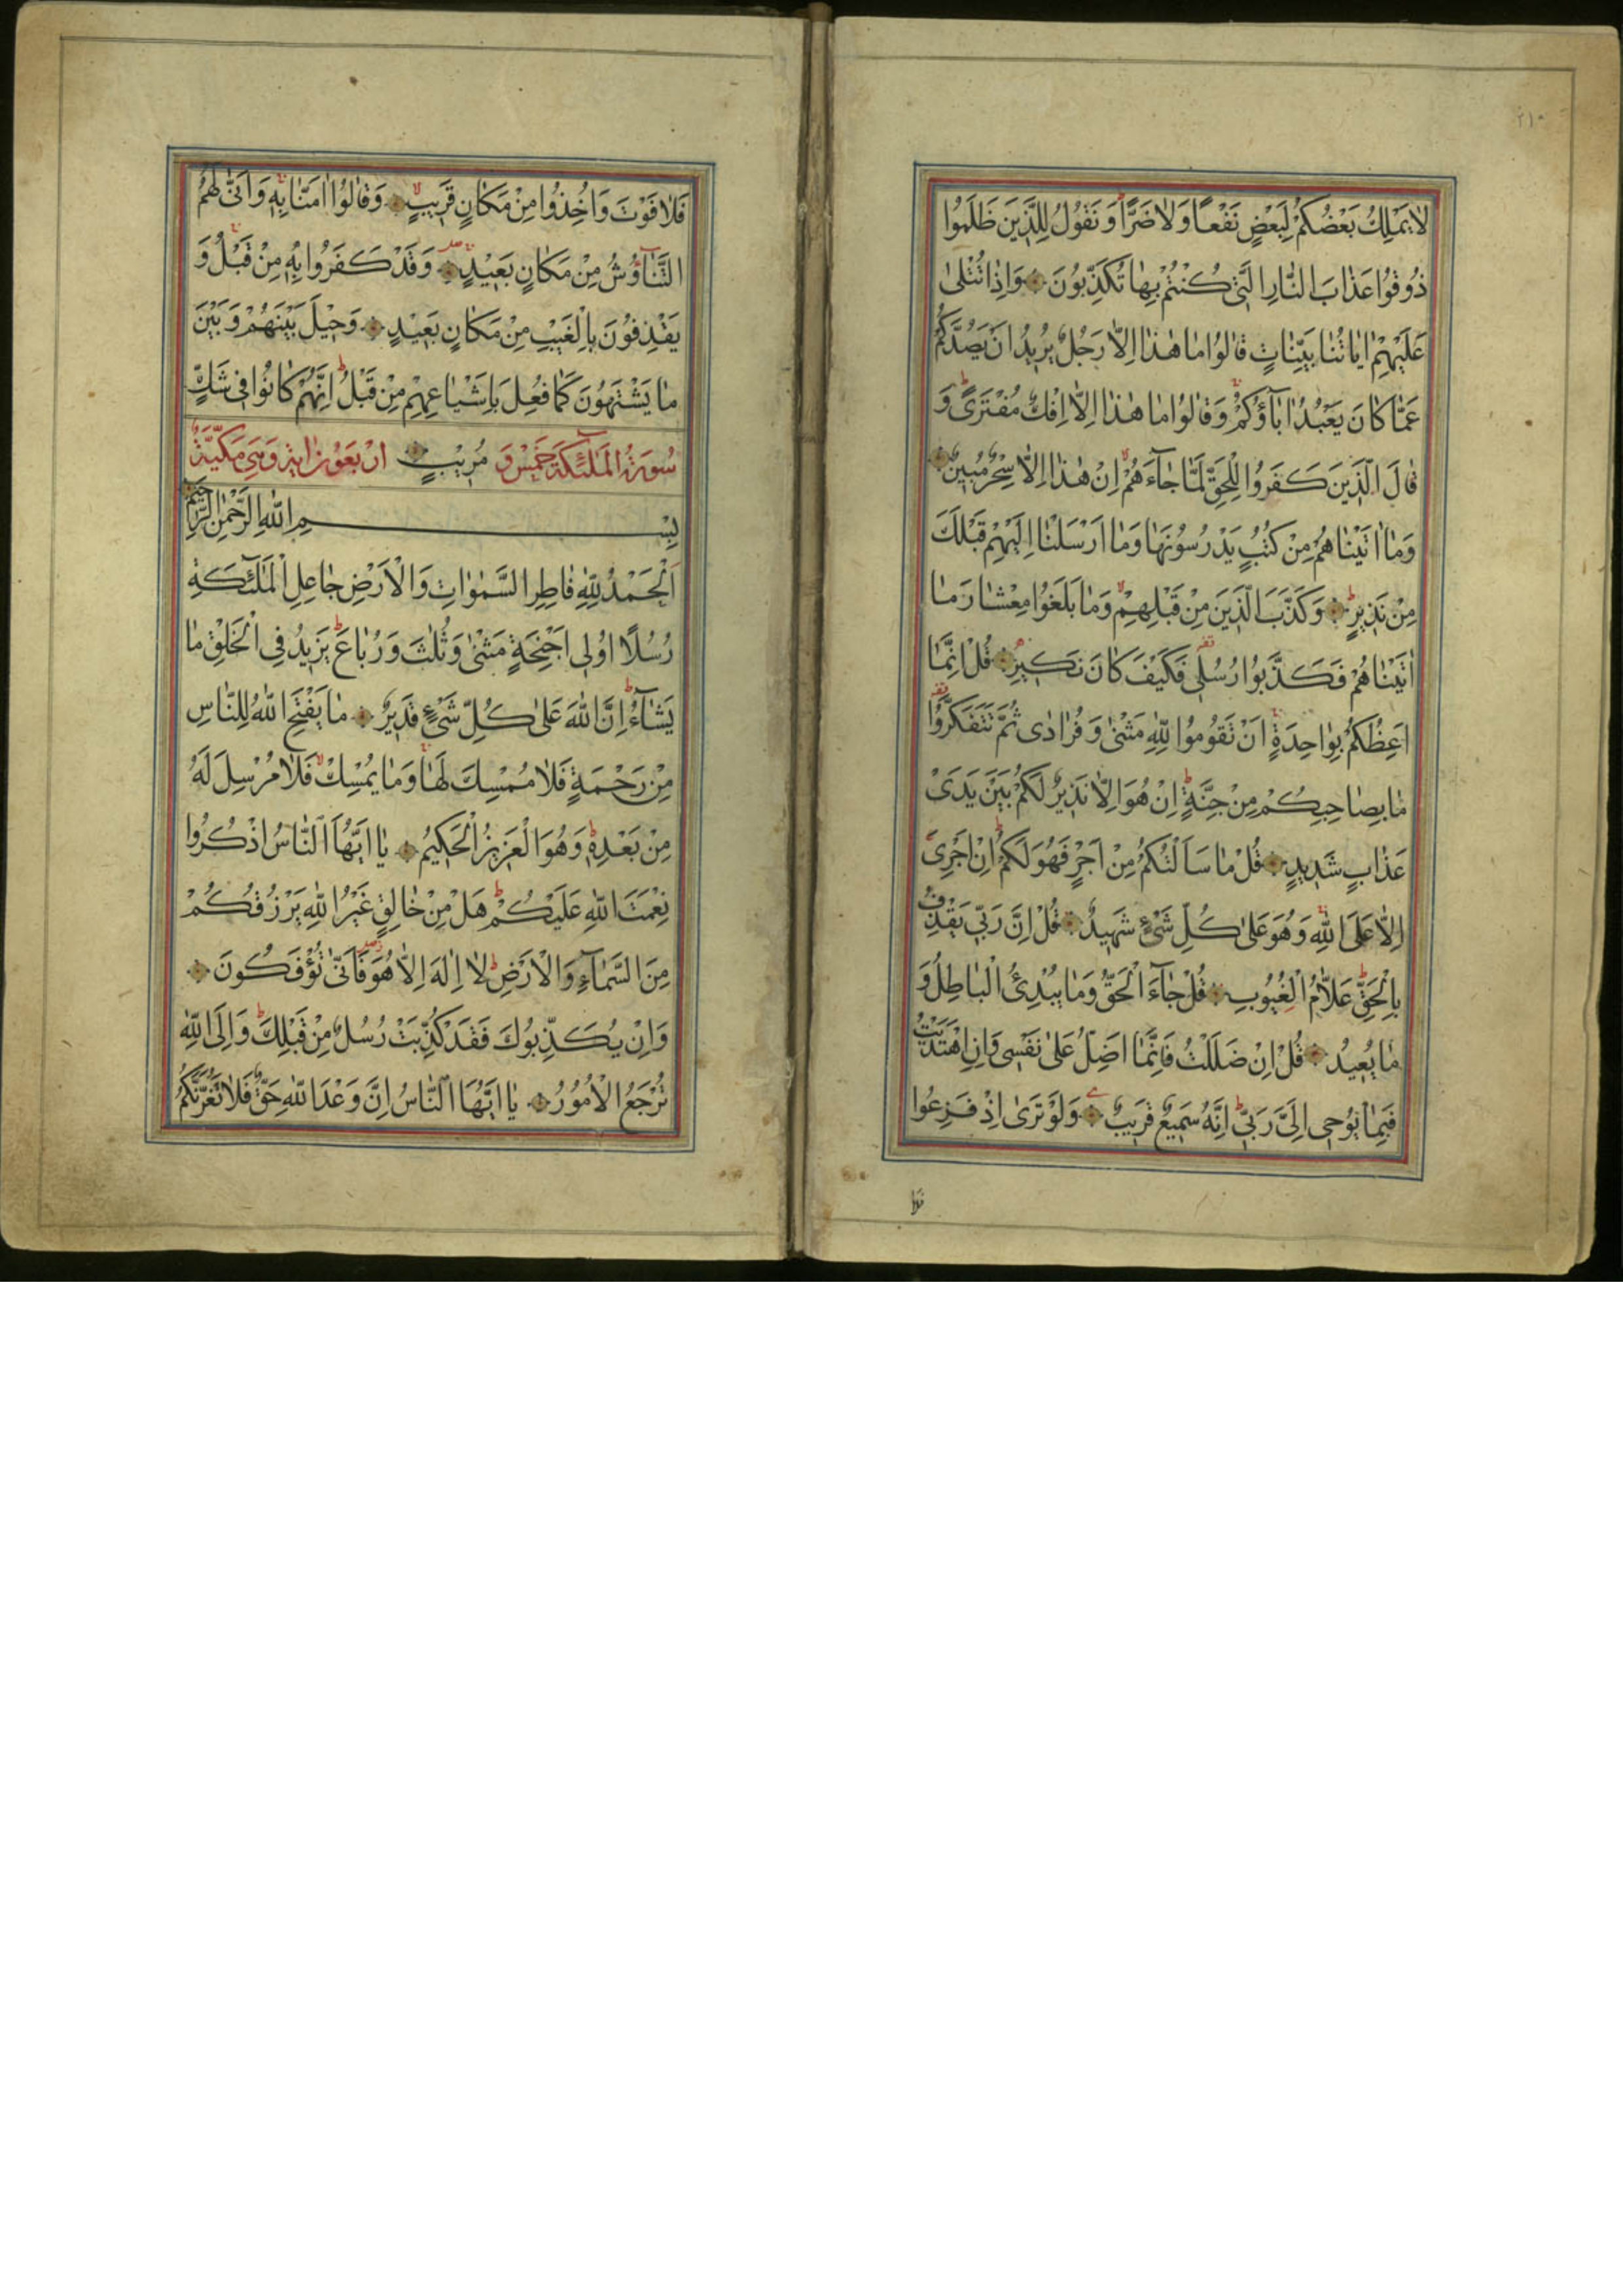 ٢١٠
لَا يَمْلِكُ بَعْضُكُمْ لِبَعْضٍ نَفْعًا وَلَا ضَرًّا وَنَقُولُ لِلَّذِينَ ظَلَمُوا
ذُوقُوا عَذَابَ النَّارِ الَّتِي كُنْتُمْ بِهَا تُكَذِّبُونَ وَإِذَا تُتْلَىٰ
عَلَيْهِمْ اٰيَاتُنَا بَيِّنَاتٍ قَالُوا مَا هٰذَا اِلَّا رَجُلٌ يُرِيدُ اَنْ يَصُدَّكُمْ
عَمَّا كَانَ يَعْبُدُ اٰبَآؤُكُمْ وَقَالُوا مَا هٰذَا اِلَّا اِفْكٌ مُفْتَرًى وَ
قَالَ الَّذِينَ كَفَرُوا لِلْحَقِّ لَمَّا جَآءَهُمْ اِنْ هٰذَا اِلَّا سِحْرٌ مُبِينٌ
وَمَا اٰتَيْنَاهُمْ مِنْ كُتُبٍ يَدْرُسُونَهَا وَمَا اَرْسَلْنَا اِلَيْهِمْ قَبْلَكَ
مِنْ نَذِيرٍ وَكَذَّبَ الَّذِينَ مِنْ قَبْلِهِمْ وَمَا بَلَغُوا مِعْشَارَ مَا
اٰتَيْنَاهُمْ فَكَذَّبُوا رُسُلِي فَكَيْفَ كَانَ نَكِيرِ قُلْ اِنَّمَا
اَعِظُكُمْ بِوَاحِدَةٍ اَنْ تَقُومُوا لِلّٰهِ مَثْنٰى وَفُرَادٰى ثُمَّ تَتَفَكَّرُوا
مَا بِصَاحِبِكُمْ مِنْ جِنَّةٍ اِنْ هُوَ اِلَّا نَذِيرٌ لَكُمْ بَيْنَ يَدَىْ
عَذَابٍ شَدِيدٍ قُلْ مَا سَاَلْتُكُمْ مِنْ اَجْرٍ فَهُوَ لَكُمْ اِنْ اَجْرِىَ
اِلَّا عَلَى اللّٰهِ وَهُوَ عَلٰى كُلِّ شَىْءٍ شَهِيدٌ قُلْ اِنَّ رَبِّى يَقْذِفُ
بِالْحَقِّ عَلَّامُ الْغُيُوبِ قُلْ جَآءَ الْحَقُّ وَمَا يُبْدِئُ الْبَاطِلُ وَ
مَا يُعِيدُ قُلْ اِنْ ضَلَلْتُ فَاِنَّمَا اَضِلُّ عَلٰى نَفْسِى وَاِنِ اهْتَدَيْتُ
فَبِمَا يُوحِى اِلَىَّ رَبِّى اِنَّهُ سَمِيعٌ قَرِيبٌ وَلَوْ تَرٰى اِذْ فَزِعُوا
فَلَا
فَلَا فَوْتَ وَاُخِذُوا مِنْ مَكَانٍ قَرِيبٍ وَقَالُوا اٰمَنَّا بِهِ وَاَنّٰى لَهُمُ
التَّنَاوُشُ مِنْ مَكَانٍ بَعِيدٍ وَقَدْ كَفَرُوا بِهِ مِنْ قَبْلُ وَ
يَقْذِفُونَ بِالْغَيْبِ مِنْ مَكَانٍ بَعِيدٍ وَحِيلَ بَيْنَهُمْ وَبَيْنَ
مَا يَشْتَهُونَ كَمَا فُعِلَ بِاَشْيَاعِهِمْ مِنْ قَبْلُ اِنَّهُمْ كَانُوا فِى شَكٍّ
سُورَةُ الْمَلٰٓئِكَةِ خَمْسٌ وَ مُرِيبٍ اَرْبَعُونَ اٰيَةً وَهِىَ مَكِّيَّةٌ
بِسْمِ اللّٰهِ الرَّحْمٰنِ الرَّحِيمِ
اَلْحَمْدُ لِلّٰهِ فَاطِرِ السَّمٰوَاتِ وَالْاَرْضِ جَاعِلِ الْمَلٰٓئِكَةِ
رُسُلًا اُولِى اَجْنِحَةٍ مَثْنٰى وَثُلٰثَ وَرُبَاعَ يَزِيدُ فِى الْخَلْقِ مَا
يَشَآءُ اِنَّ اللّٰهَ عَلٰى كُلِّ شَىْءٍ قَدِيرٌ مَا يَفْتَحِ اللّٰهُ لِلنَّاسِ
مِنْ رَحْمَةٍ فَلَا مُمْسِكَ لَهَا وَمَا يُمْسِكْ فَلَا مُرْسِلَ لَهُ
مِنْ بَعْدِهِ وَهُوَ الْعَزِيزُ الْحَكِيمُ يَا اَيُّهَا النَّاسُ اذْكُرُوا
نِعْمَتَ اللّٰهِ عَلَيْكُمْ هَلْ مِنْ خَالِقٍ غَيْرُ اللّٰهِ يَرْزُقُكُمْ
مِنَ السَّمَآءِ وَالْاَرْضِ لَا اِلٰهَ اِلَّا هُوَ فَاَنّٰى تُؤْفَكُونَ
وَاِنْ يُكَذِّبُوكَ فَقَدْ كُذِّبَتْ رُسُلٌ مِنْ قَبْلِكَ وَاِلَى اللّٰهِ
تُرْجَعُ الْاُمُورُ يَا اَيُّهَا النَّاسُ اِنَّ وَعْدَ اللّٰهِ حَقٌّ فَلَا تَغُرَّنَّكُمُ